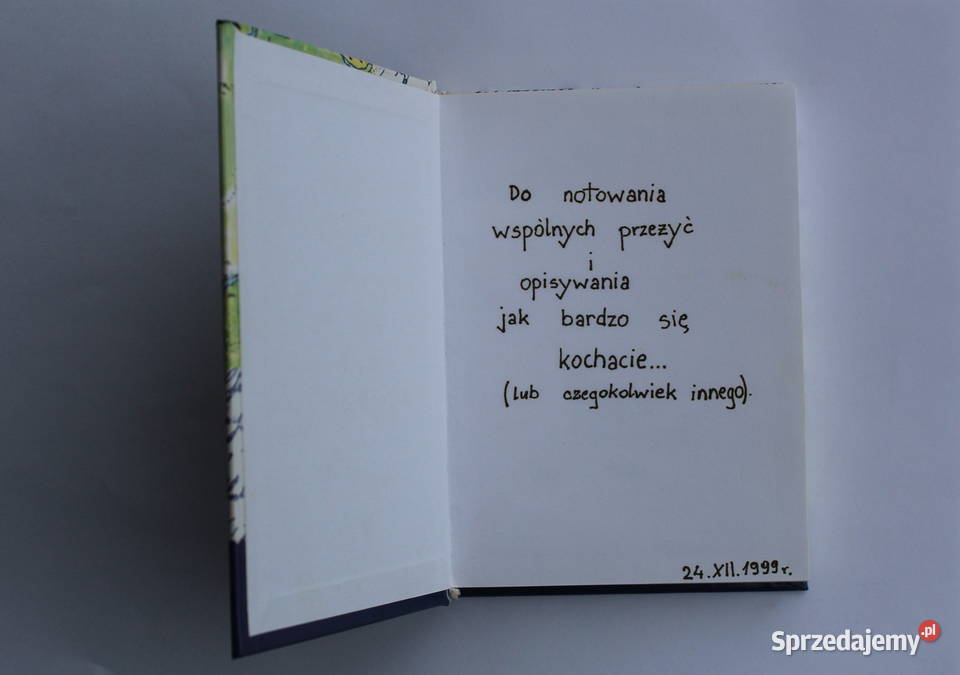 Do notowania
wspólnych przeżyć
i
opisywania
jak bardzo się
kochacie...
(lub czegokolwiek innego).
24.XII.1999r.
Sprzedajemy.pl